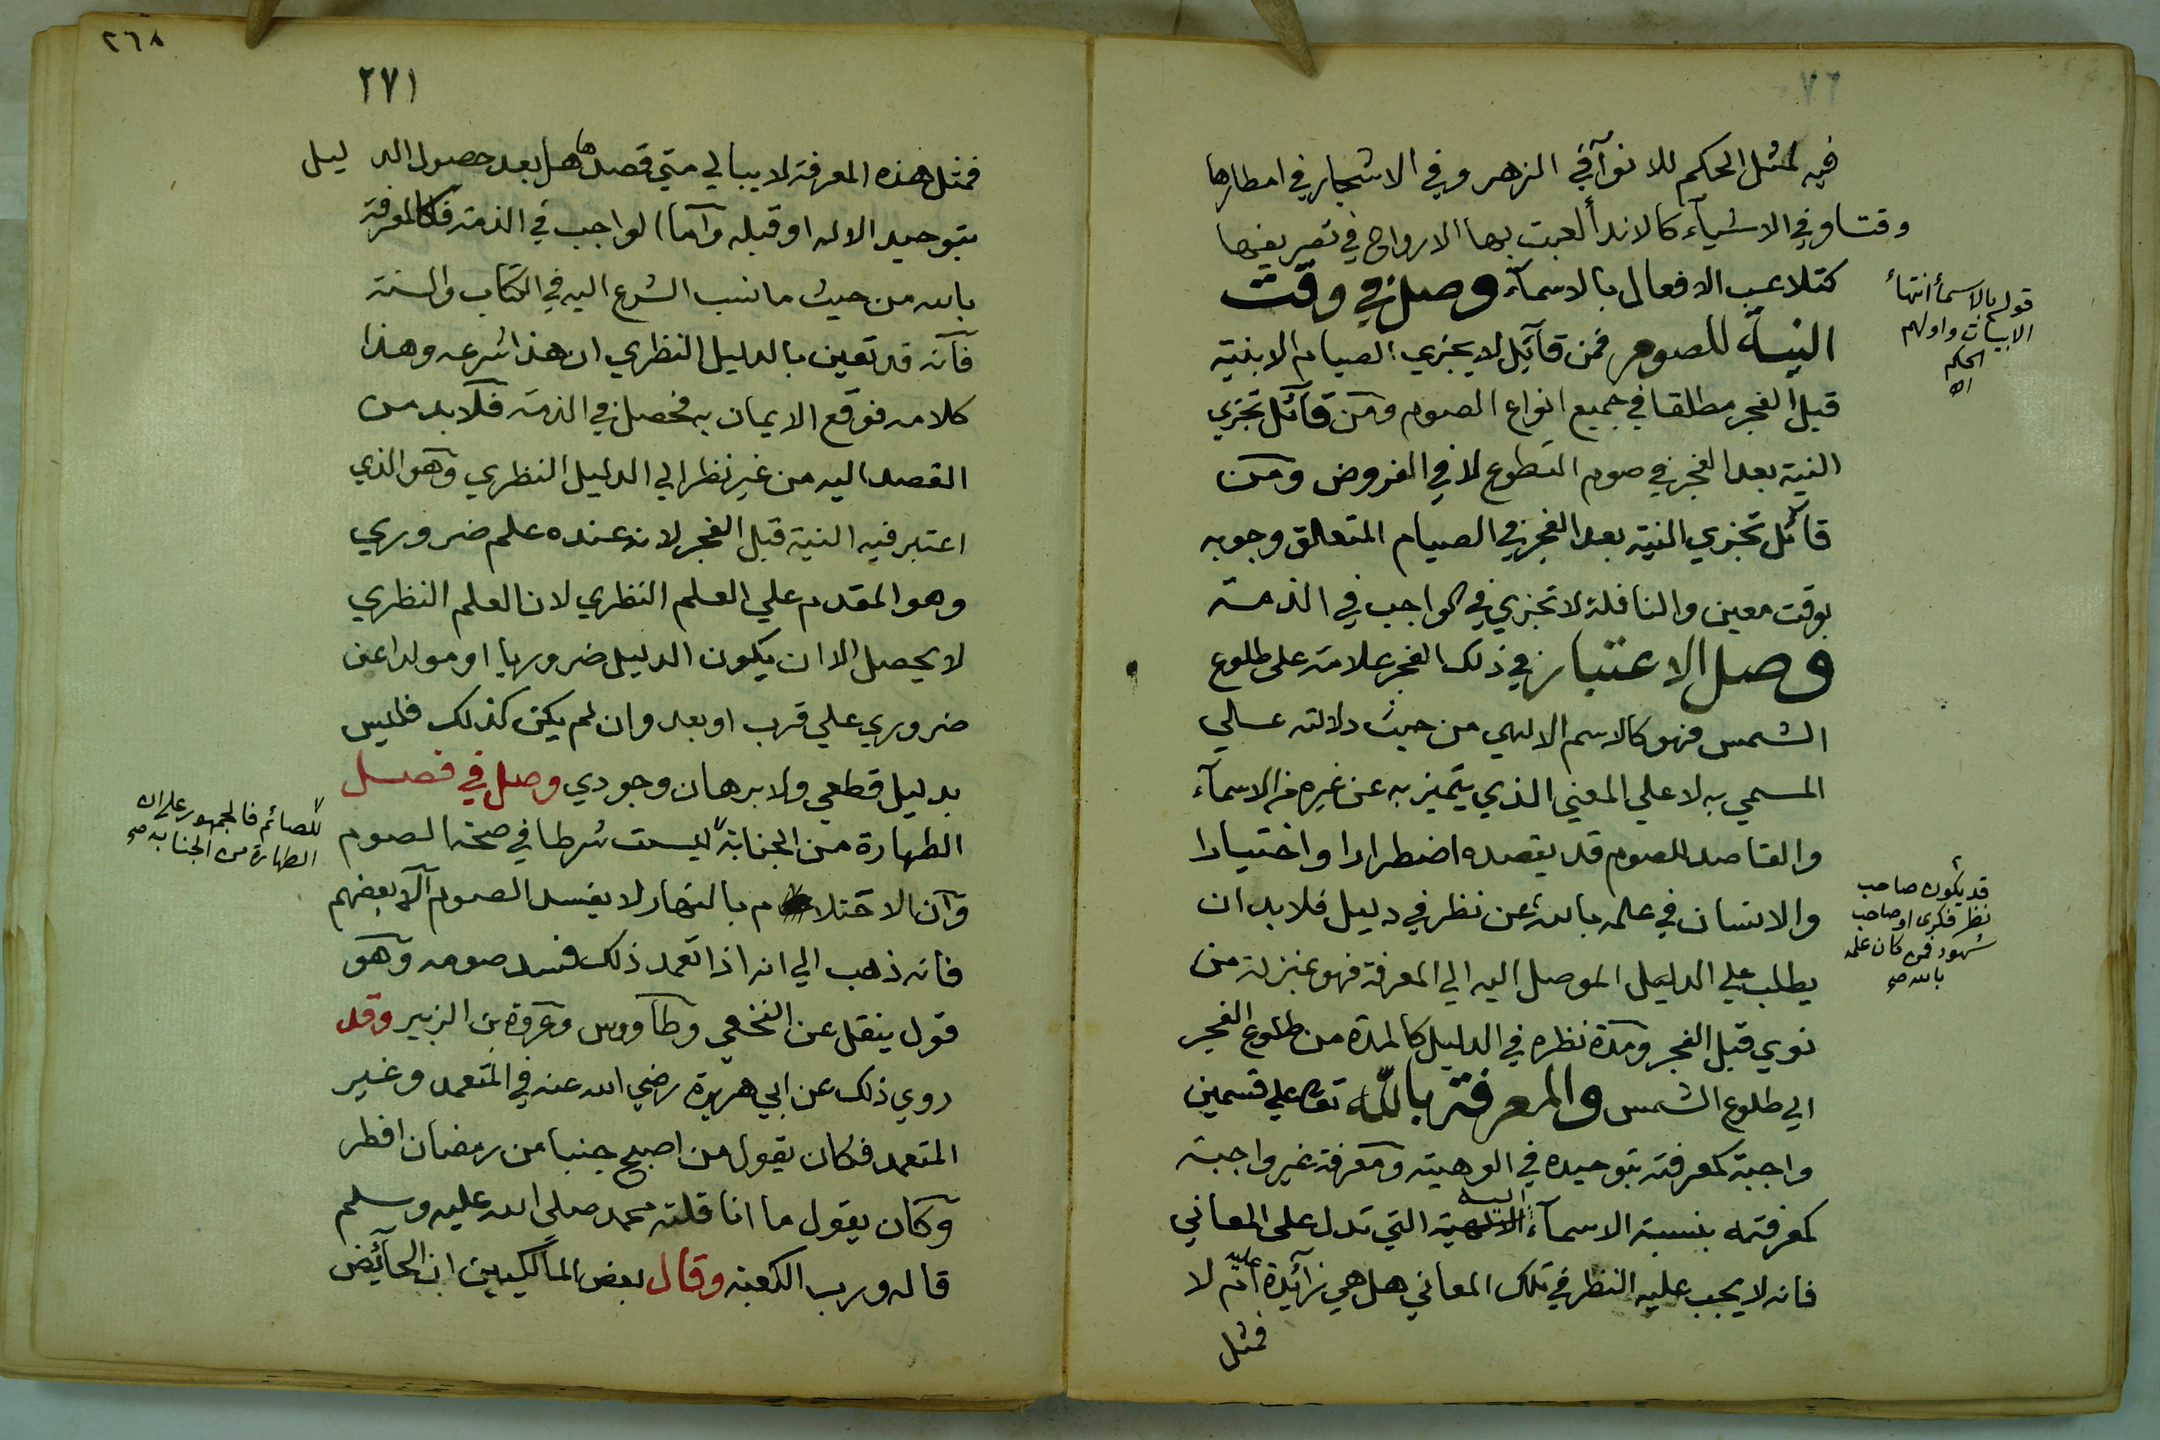 ٧٦
فيه لمثل الحكم للانوآفي الزهر وفي الاشجار في امطارها
وقتا وفي الاشيآء كالاندأ لعبت بها الارواح في تصريفها
كتلاعب الافعال بالاسمآء وصل في وقت
قوله بالاسمأ انتهأ
الابيات واولهم
الحكم
اه
النية للصوم فمن قآئل لا يجزي الصيام الا بنية
قبل الفجر مطلقا في جميع انواع الصوم ومن قآئل تجزي
النية بعد الفجر في صوم التطوع لا في الفروض ومن
قآئل تجزي النية بعد الفجر في الصيام المتعلق وجوبه
بوقت معين والنافلة لا تجزي في الواجب في الذمة
وصل الاعتبار في ذلك الفجر علامة على طلوع
الشمس فهو كالاسم الالهي من حيث دلالته علي
المسمي به لا علي المعني الذي يتميز به عن غيره من الاسمآء
والقاصد للصوم قد يقصده اضطرارا واختيارا
والانسان في علمه بالله عن نظر في دليل فلا بد ان
قد يكون صاحب
نظر فكرى او صاحب
شهود فمن كان علمه
بالله صح
يطلب علي الدليل الموصل اليه الي المعرفة فهو بمنزلة من
نوي قبل الفجر ومدة نظره في الدليل كالمدة من طلوع الفجر
الي طلوع الشمس والمعرفة بالله تعا علي قسمين
واجبة كمعرفته بتوحيده في الوهيته ومعرفة غير واجبة
كمعرفته بنسبة الاسمآء اليه التي تدل على المعاني
فانه لا يجب عليه النظر في تلك المعاني هل هي زآئدة عليه ام لا
فمثل
٢٦٨
٢٧١
فمثل هذه المعرفة لا يبالي متي قصدها هل بعد حصول الدليل
بتوحيد الاله او قبله وآما الواجب في الذمة فكالمعرفة
بالله من حيث ما نسب الشرع اليه في الكتاب والسنة
فآنه قد تعين بالدليل النظري ان هذا شرعه وهذا
كلامه فوقع الايمان به فحصل في الذمة فلا بد من
القصد اليه من غير نظر الي الدليل النظري وهو الذي
اعتبر فيه النية قبل الفجر لانه عنده علم ضروري
وهو المقدم علي العلم النظري لان العلم النظري
لا يحصل الا ان يكون الدليل ضروريا او مولدا عن
ضروري علي قرب او بعد وان لم يكن كذلك فليس
بدليل قطعي ولا برهان وجودي وصل في فصل
الطهارة من الجنابة ليست شرطا في صحة الصوم
للصائم فالجمهور على ان
الطهارة من الجنابة صح
وآن الاحتلام بالنهار لا يفسد الصوم آلا بعضهم
فانه ذهب الي انه اذا تعمد ذلك فسد صومه وهو
قول ينقل عن النخعي وطآووس وعروة بن الزبير وقد
روي ذلك عن ابي هريرة رضي الله عنه في المتعمد وغير
المتعمد فكان يقول من اصبح جنبا من رمضان افطر
وكان يقول ما انا قلته محمد صلي الله عليه وسلم
قاله ورب الكعبة وقال بعض المالكيين ان الحآئض